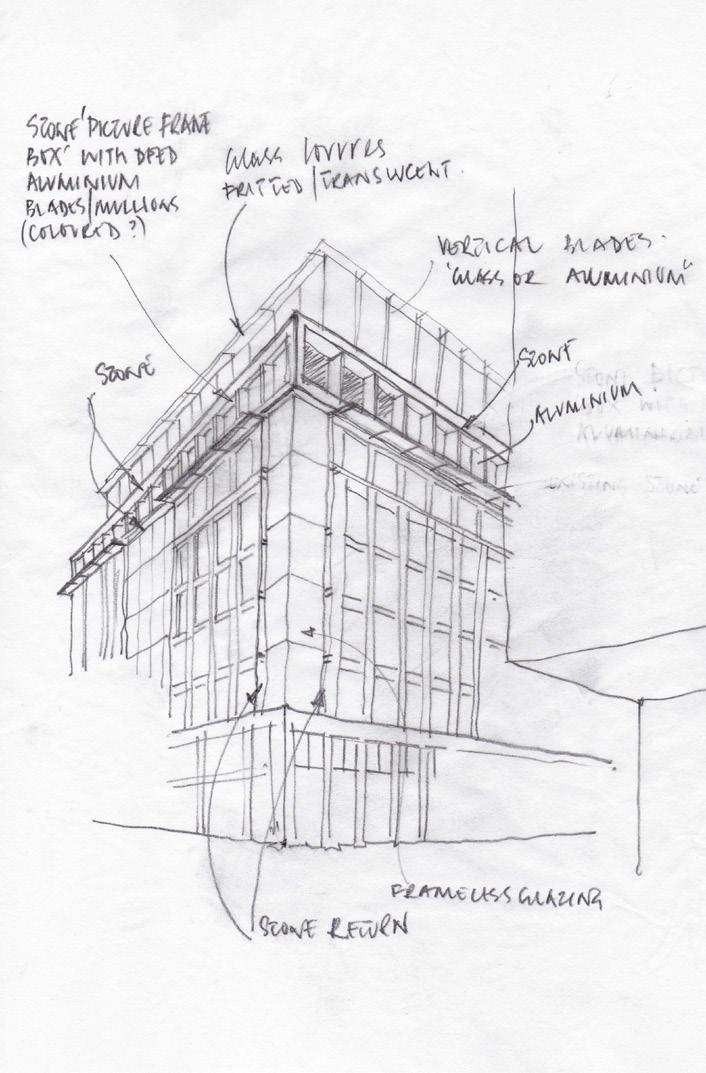 STONE 'PICTURE FRAME
BOX' WITH DEEP
ALUMINIUM
BLADES/MULLIONS
(COLOURED?)
GLASS LOUVRES
FRITTED/TRANSLUCENT.
VERTICAL BLADES.
'GLASS OR ALUMINIUM'
STONE
STONE
ALUMINIUM.
FRAMELESS GLAZING
STONE RETURN